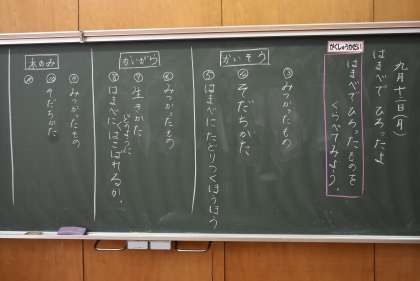 九月十二日(月)
はまべで ひろったよ
がくしゅうかだい
はまべでひろったものを
くらべてみよう。
かいそう
③みつかったもの
④そだちかた
⑤はまべにたどりつくほうほう
かいがら
⑥みつかったもの
⑦生きかた
どのように
⑧はまべにはこばれるか。
木のみ
⑨みつかったもの
⑩そだちかた
⑪